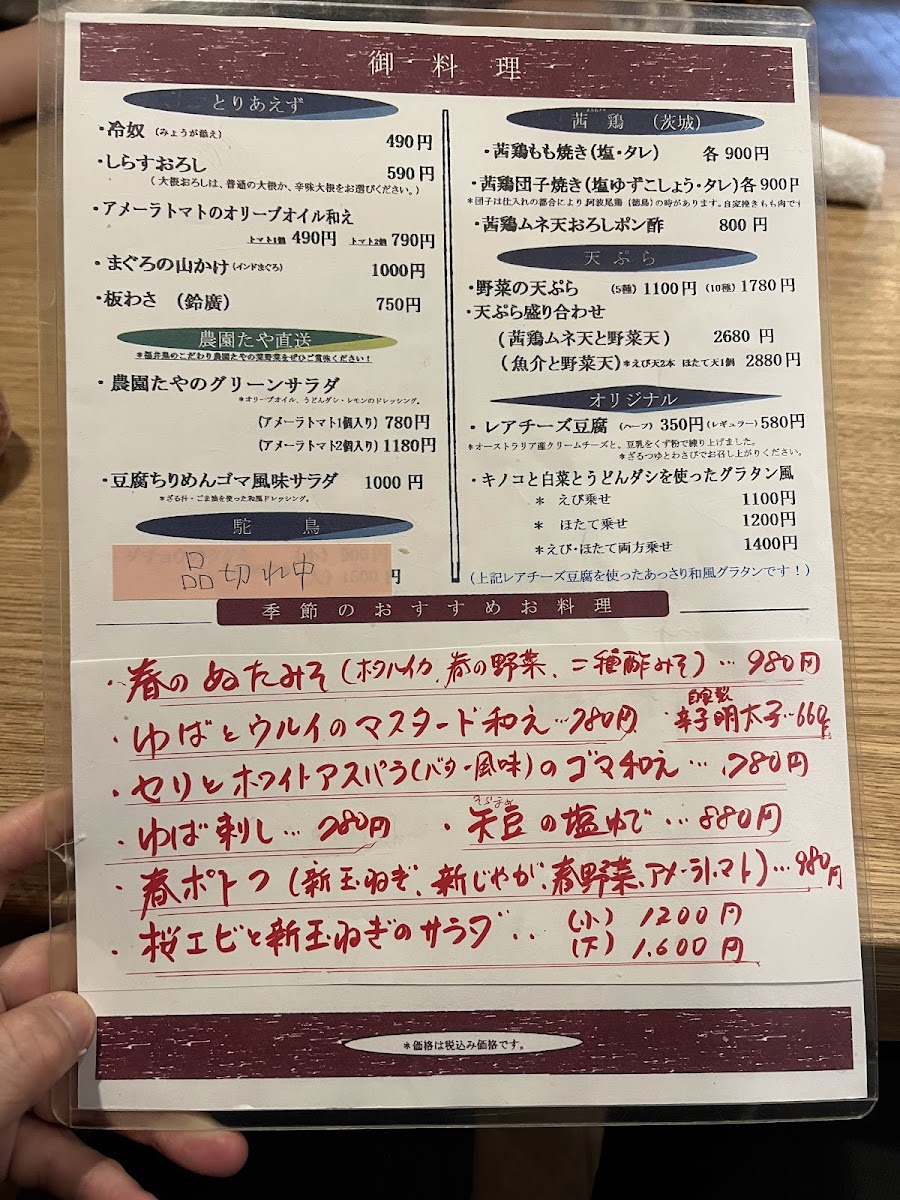 御料理
とりあえず
・冷奴（みょうが添え）
490円
・しらすおろし
590円
（大根おろしは、普通の大根か、辛味大根をお選びください。）
・アメーラトマトのオリーブオイル和え
トマト1個 490円 トマト2個 790円
・まぐろの山かけ（インドまぐろ）
1000円
・板わさ （鈴廣）
750円
農園たや直送
＊福井県のこだわり農園たやの葉野菜をぜひご賞味ください！
・農園たやのグリーンサラダ
＊オリーブオイル、うどんダシ・レモンのドレッシング。
（アメーラトマト1個入り）780円
（アメーラトマト2個入り）1180円
・豆腐ちりめんゴマ風味サラダ 1000円
＊ざる汁・ごま油を使った和風ドレッシング。
駝鳥
品切れ中
円
茜鶏 （茨城）
・茜鶏もも焼き（塩・タレ） 各900円
・茜鶏団子焼き（塩ゆずこしょう・タレ）各900円
＊団子は仕入れの都合により、阿波尾鶏（徳島）の時があります。自家挽きもも肉です
・茜鶏ムネ天おろしポン酢 800円
天ぷら
・野菜の天ぷら （5種）1100円（10種）1780円
・天ぷら盛り合わせ
（茜鶏ムネ天と野菜天） 2680円
（魚介と野菜天）＊えび天2本 ほたて天1個 2880円
オリジナル
・レアチーズ豆腐 （ハーフ）350円（レギュラー）580円
＊オーストラリア産クリームチーズと、豆乳をくず粉で練り上げました。
＊ざるつゆとわさびでお召し上がりください。
・キノコと白菜とうどんダシを使ったグラタン風
＊ えび乗せ 1100円
＊ ほたて乗せ 1200円
＊えび・ほたて両方乗せ 1400円
（上記レアチーズ豆腐を使ったあっさり和風グラタンです！）
季節のおすすめお料理
・春のぬたみそ（ホタルイカ、春の野菜、二種酢みそ）…980円
・ゆばとウルイのマスタード和え…780円 ・自家製辛子明太子…660円
・セリとホワイトアスパラ（バター風味）のゴマ和え…780円
・ゆば刺し…780円 ・天豆の塩ゆで…880円
そらまめ
・春ポトフ（新玉ねぎ、新じゃが、春野菜、アメーラトマト）…980円
・桜エビと新玉ねぎのサラダ‥（小）1200円
（大）1.600円
＊価格は税込み価格です。